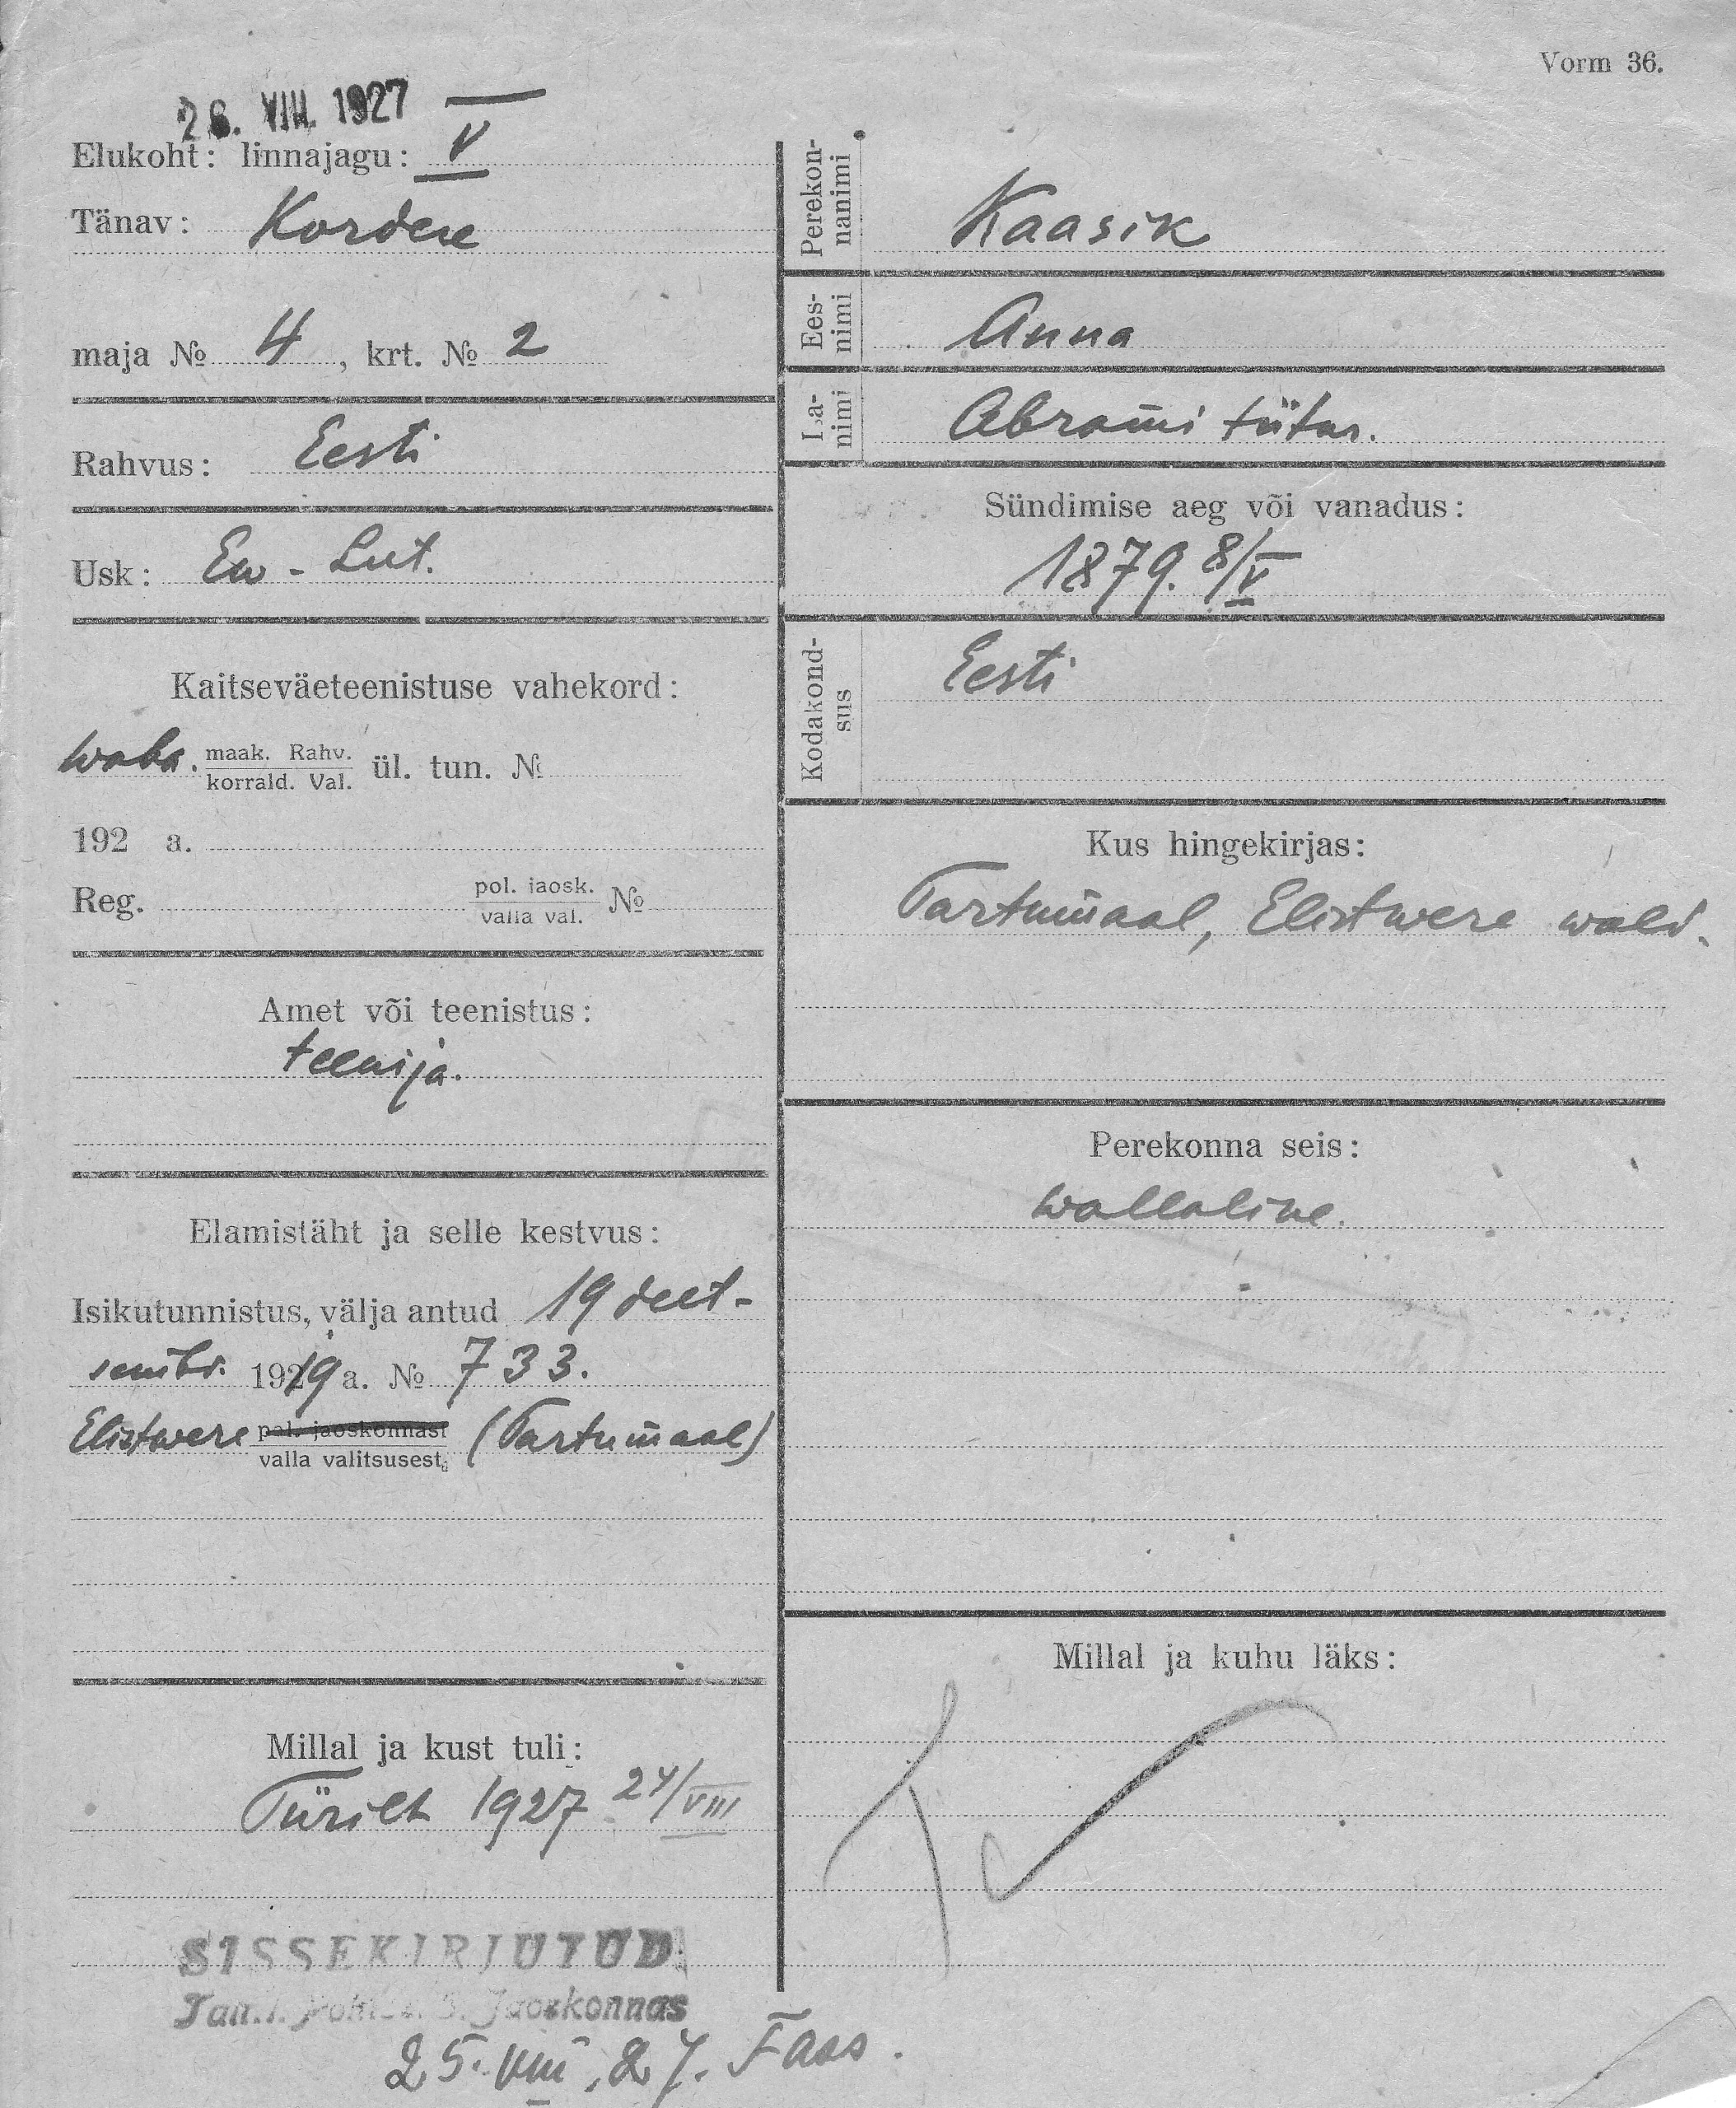 Vorm 36.
26. VIII. 1927
Elukoht: linnajagu: V
Tänav: Kordese
maja № 4, krt. № 2
Rahvus: Eesti
Usk: Ew-Lut.
Kaitseväeteenistuse vahekord:
waba. maak. Rahv. ül. tun. №
korrald. Val.
192 a.
Reg. pol. jaosk. №
valla val.
Amet või teenistus:
teenija.
Elamistäht ja selle kestvus:
Isikutunnistus, välja antud 19 deet-
sembr. 1919 a. № 733.
Elistwere pol. jaoskonnast (Tartumaal)
valla valitsusest,
Millal ja kust tuli:
Türilt 1927 24/VIII
SISSEKIRJUTUD
Tan.l. Polit. 5. Jaoskonnas
25. VIII, 27.
Perekon-
nanimi
Kaasik
Ees-
nimi
Anna
Isa-
nimi
Abrami tütar.
Sündimise aeg või vanadus:
1879. 8/V
Kodakond-
sus
Eesti
Kus hingekirjas:
Tartumaal, Elistwere wald.
Perekonna seis:
wallaline.
Millal ja kuhu läks: